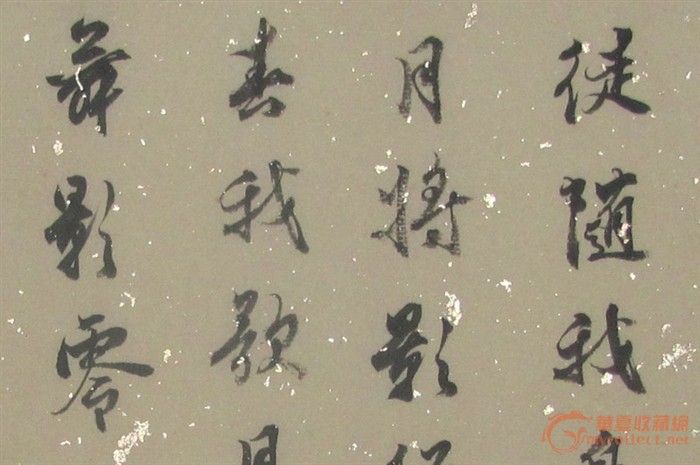 徒随我
月将影
春我歌月
舞影零
華夏收藏網
mycollect.net